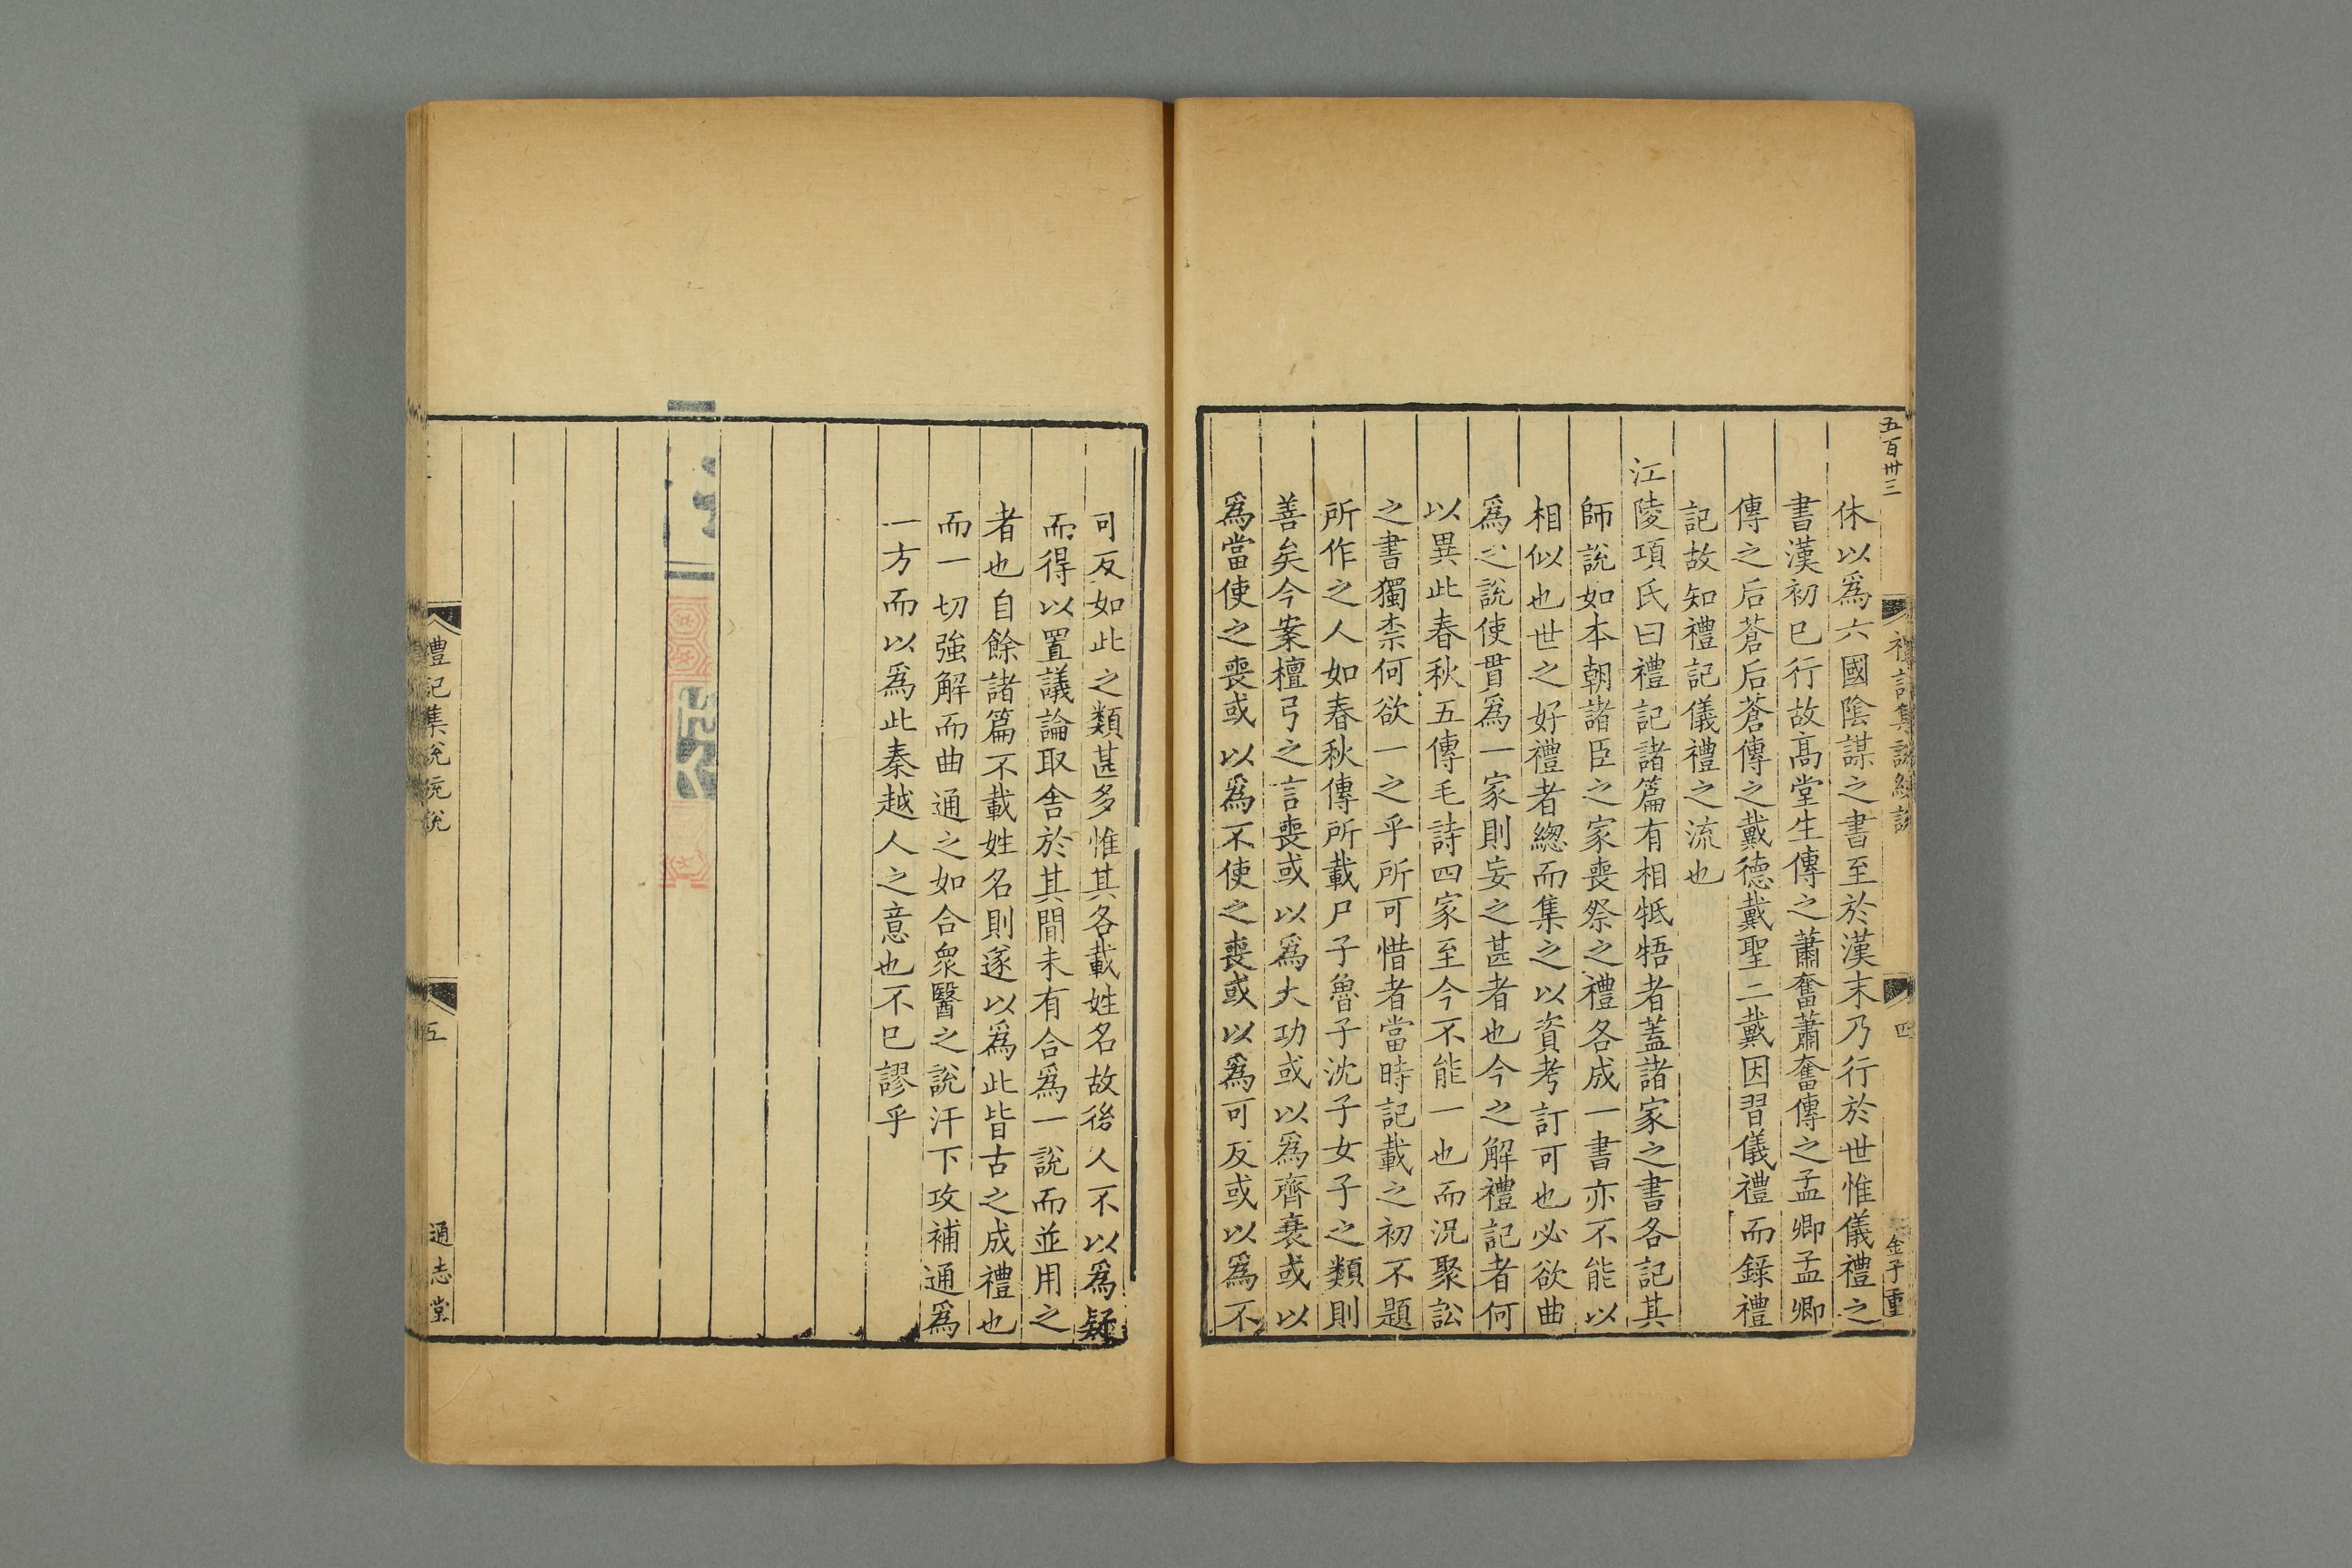 五百卅三
禮記集說統說
四
金子重
休以爲六國陰謀之書至於漢末乃行於世惟儀禮之
書漢初已行故高堂生傳之蕭奮蕭奮傳之孟卿孟卿
傳之后蒼后蒼傳之戴德戴聖二戴因習儀禮而錄禮
記故知禮記儀禮之流也
江陵項氏曰禮記諸篇有相牴牾者蓋諸家之書各記其
師說如本朝諸臣之家喪祭之禮各成一書亦不能以
相似也世之好禮者緫而集之以資考訂可也必欲曲
爲之說使貫爲一家則妄之甚者也今之解禮記者何
以異此春秋五傳毛詩四家至今不能一也而況聚訟
之書獨柰何欲一之乎所可惜者當時記載之初不題
所作之人如春秋傳所載尸子魯子沈子女子之類則
善矣今案檀弓之言喪或以爲大功或以爲齊衰或以
爲當使之喪或以爲不使之喪或以爲可反或以爲不
可反如此之類甚多惟其各載姓名故後人不以爲疑
而得以置議論取舍於其間未有合爲一說而並用之
者也自餘諸篇不載姓名則遂以爲此皆古之成禮也
而一切強解而曲通之如合衆醫之說汗下攻補通爲
一方而以爲此秦越人之意也不已謬乎
禮記集說統說
五
通志堂